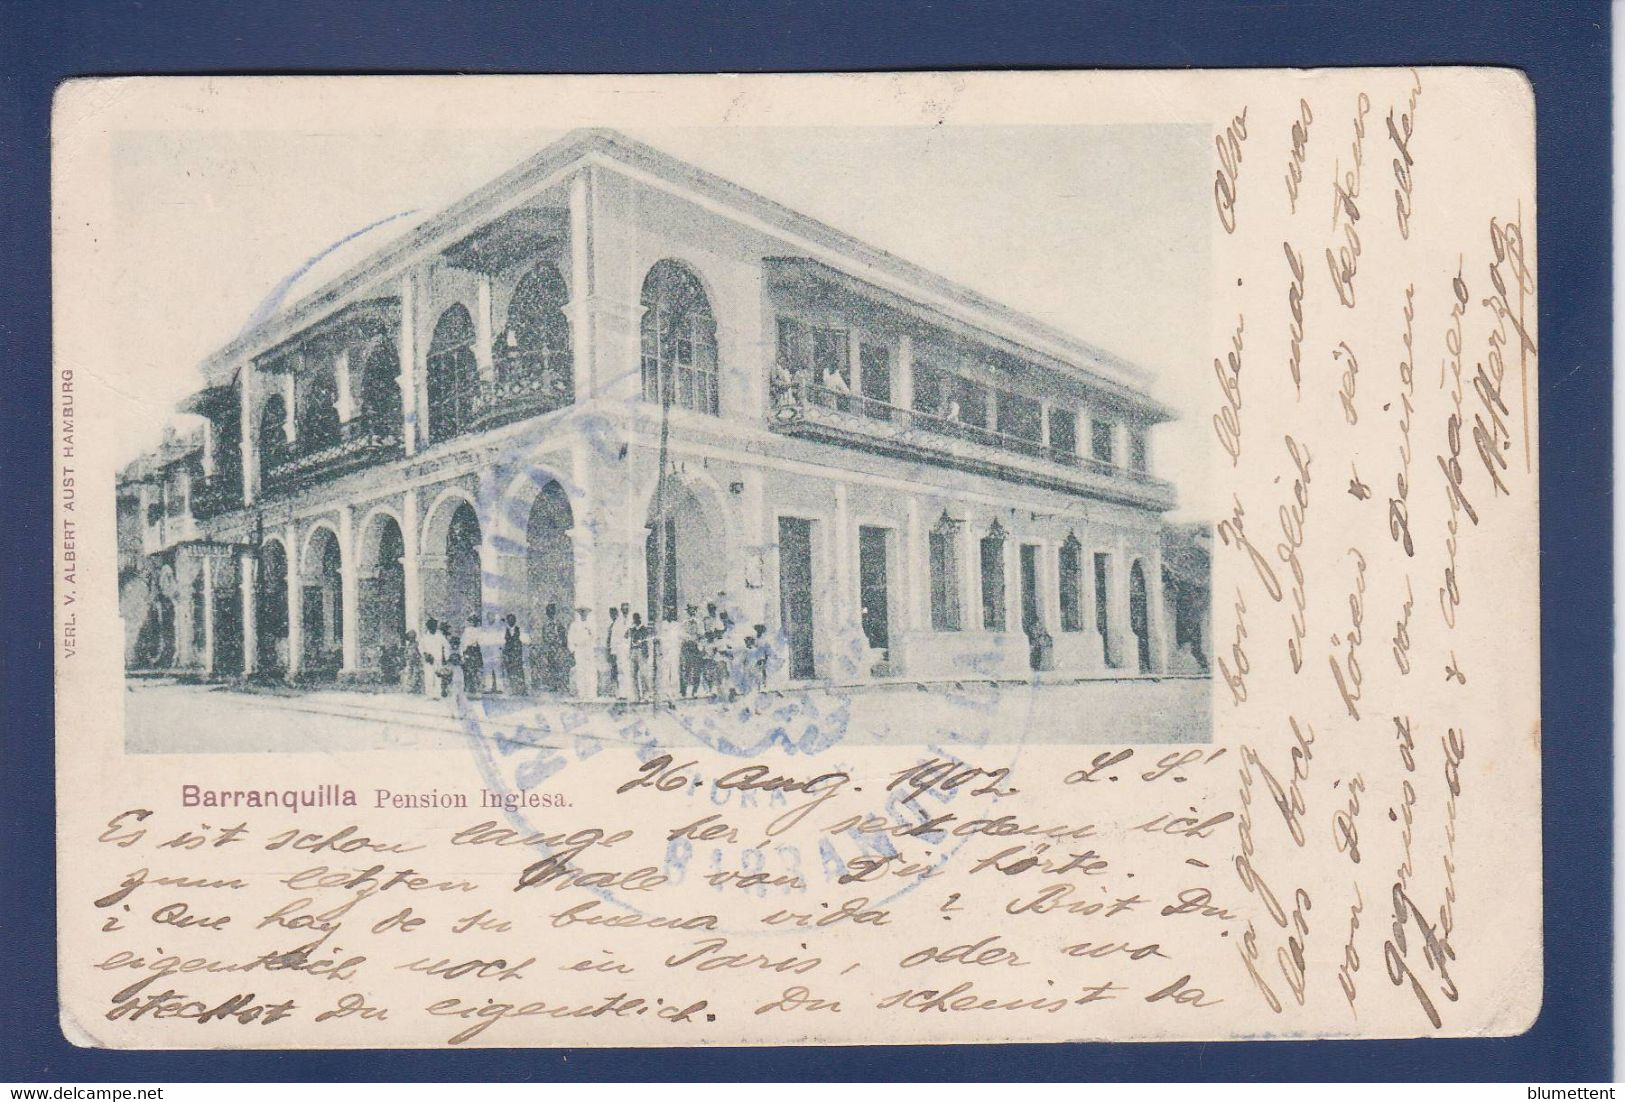 VERL. V. ALBERT AUST HAMBURG
Barranquilla Pension Inglesa.
26. Aug. 1902. L. S.!
Es ist schon lange her, seitdem ich
zum letzten Male von Dir hörte. –
¿ Que hay de su buena vida ? Bist Du
eigentlich noch in Paris, oder wo
steckst Du eigentlich. Du scheinst da
ja ganz bon zu leben. Also
lass doch endlich mal was
von Dir hören & sei bestens
gegrüsst von Deinem alten
Freunde & compañero
Herzog
BARRANQUILLA
blumettent